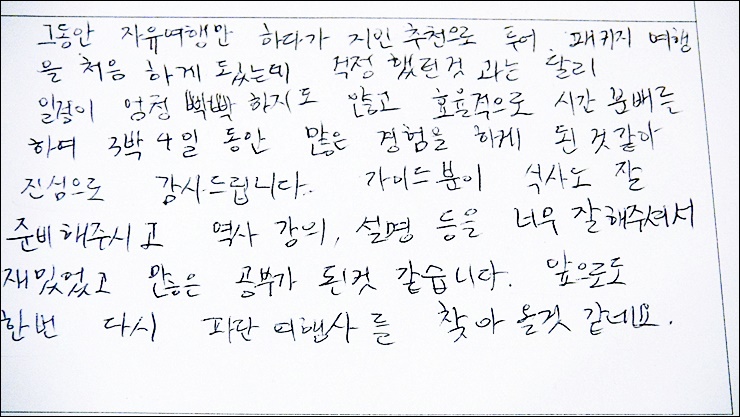 그동안 자유여행만 하다가 지인 추천으로 투어 패키지 여행
을 처음 하게 되었는데 걱정 했던것 과는 달리
일정이 엄청 빡빡 하지도 않고 효율적으로 시간 분배를
하여 3박 4일 동안 많은 경험을 하게 된 것같아
진심으로 감사드립니다. 가이드분이 식사도 잘
준비해주시고 역사 강의, 설명 등을 너무 잘해주셔서
재밌었고 많은 공부가 된것 같습니다. 앞으로도
한번 다시 파란여행사를 찾아 올것 같네요.